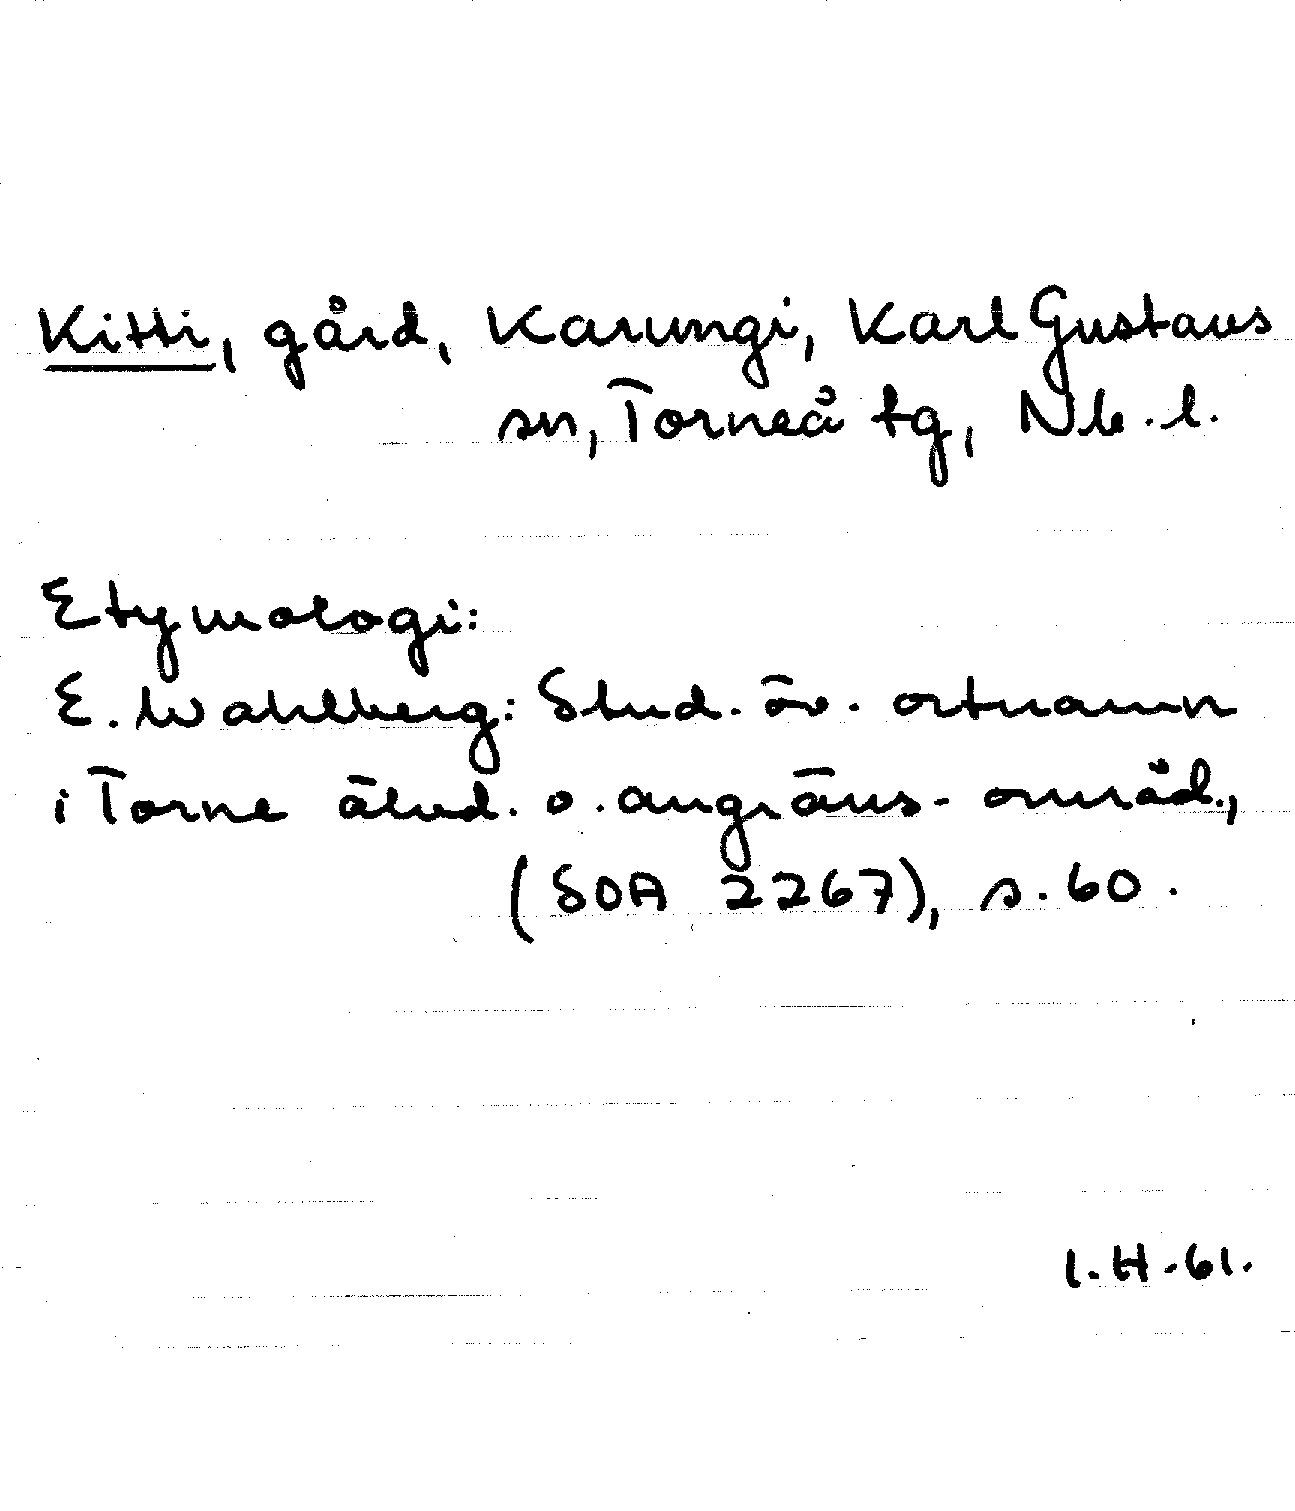 Kitti, gård, Karungi, Karl Gustavs
sn, Torneå tg, Nb. l.
Etymologi:
E. Wahlberg: Stud. öv. ortnamn
i Torne älvd. o. angräns. områd.,
(SOA 2267), s. 60.
I. H -61.